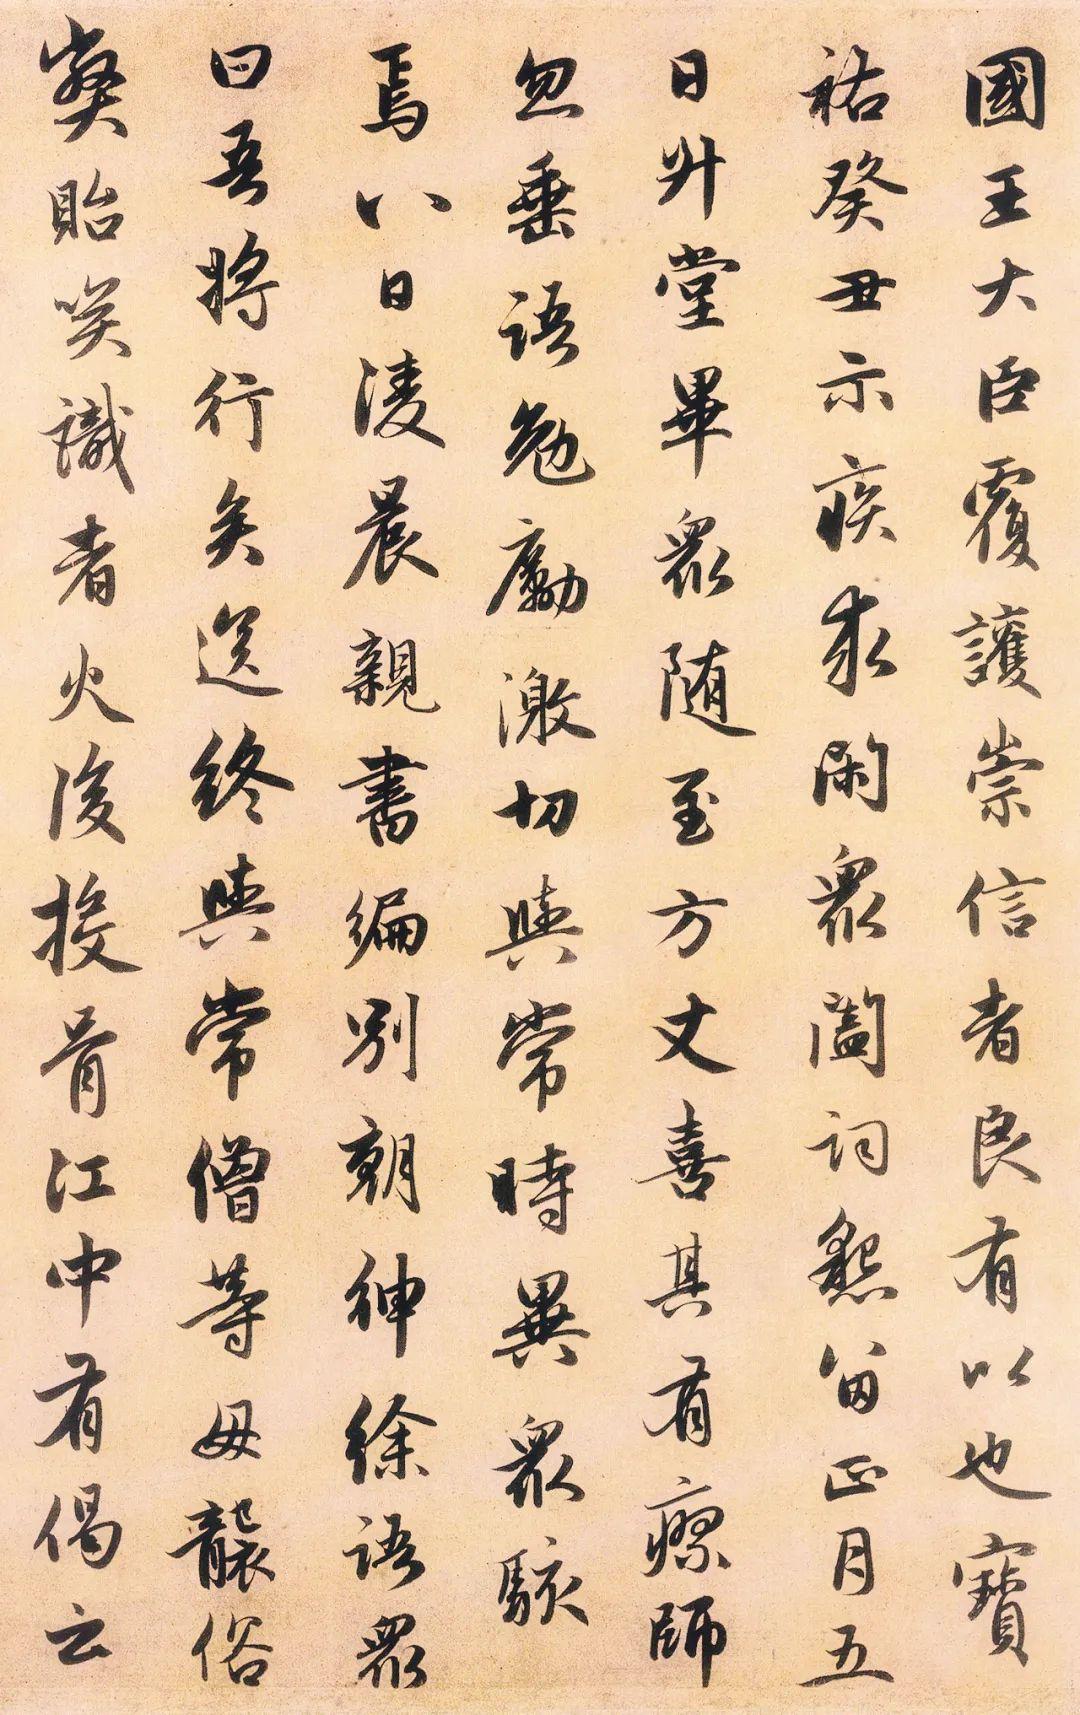 國王大臣覆護崇信者良有以也寶
祐癸丑示疾求閑眾闔詞懇留正月五
日升堂畢眾随至方丈喜其有瘳師
忽垂語勉勵激切與常時異眾駭
焉八日淩晨親書編別朝紳徐語眾
曰吾將行矣送終與常僧等毋襲俗
獘貽笑識者火後投骨江中有偈云